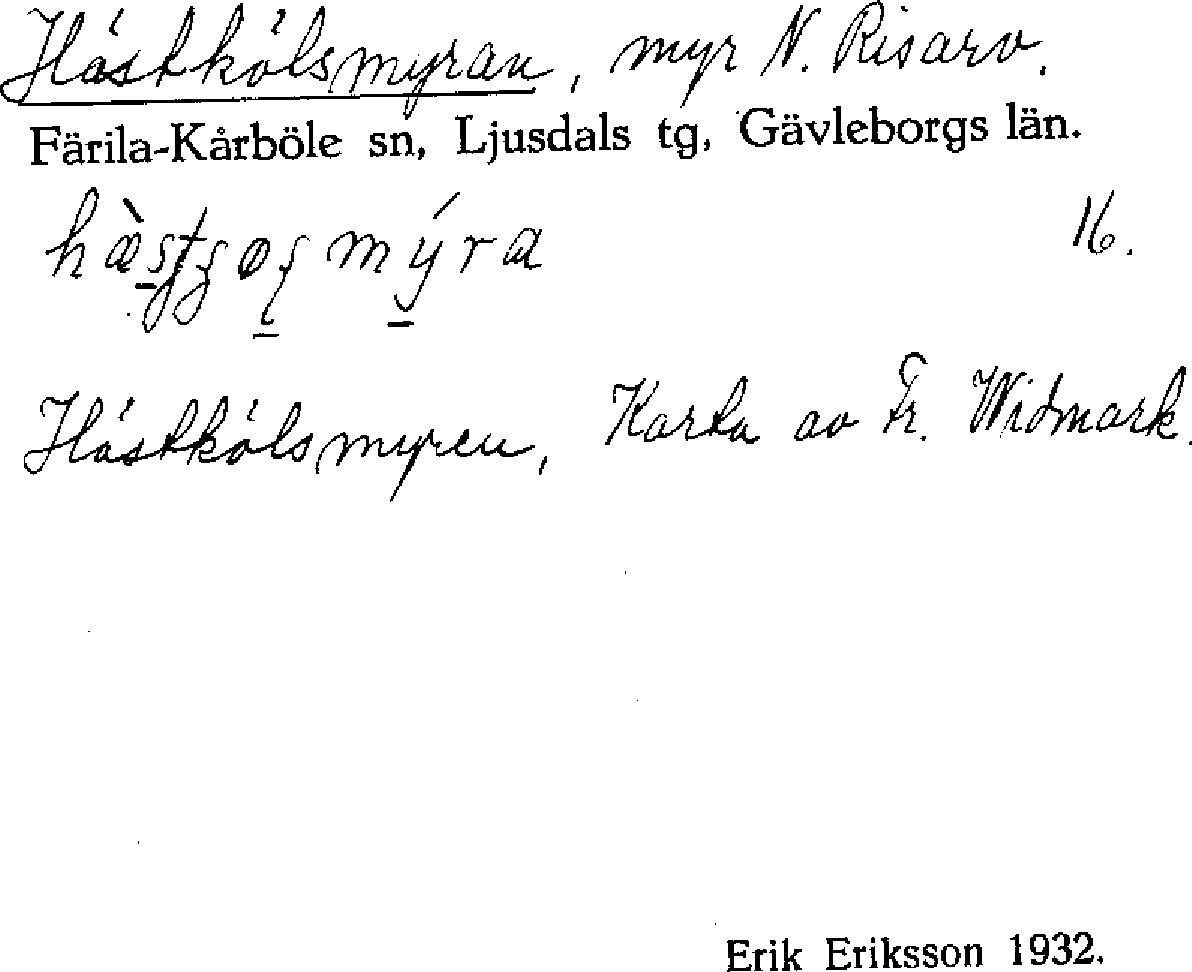 Hästkölsmyran, myr N. Risarv.
Färila-Kårböle sn, Ljusdals tg, Gävleborgs län.
16.
Hästkölsmyren, Karta av Fr. Widmark.
Erik Eriksson 1932.